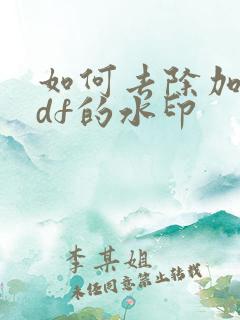 如何去除加
df的水印
李某姐
未经同意禁止转载